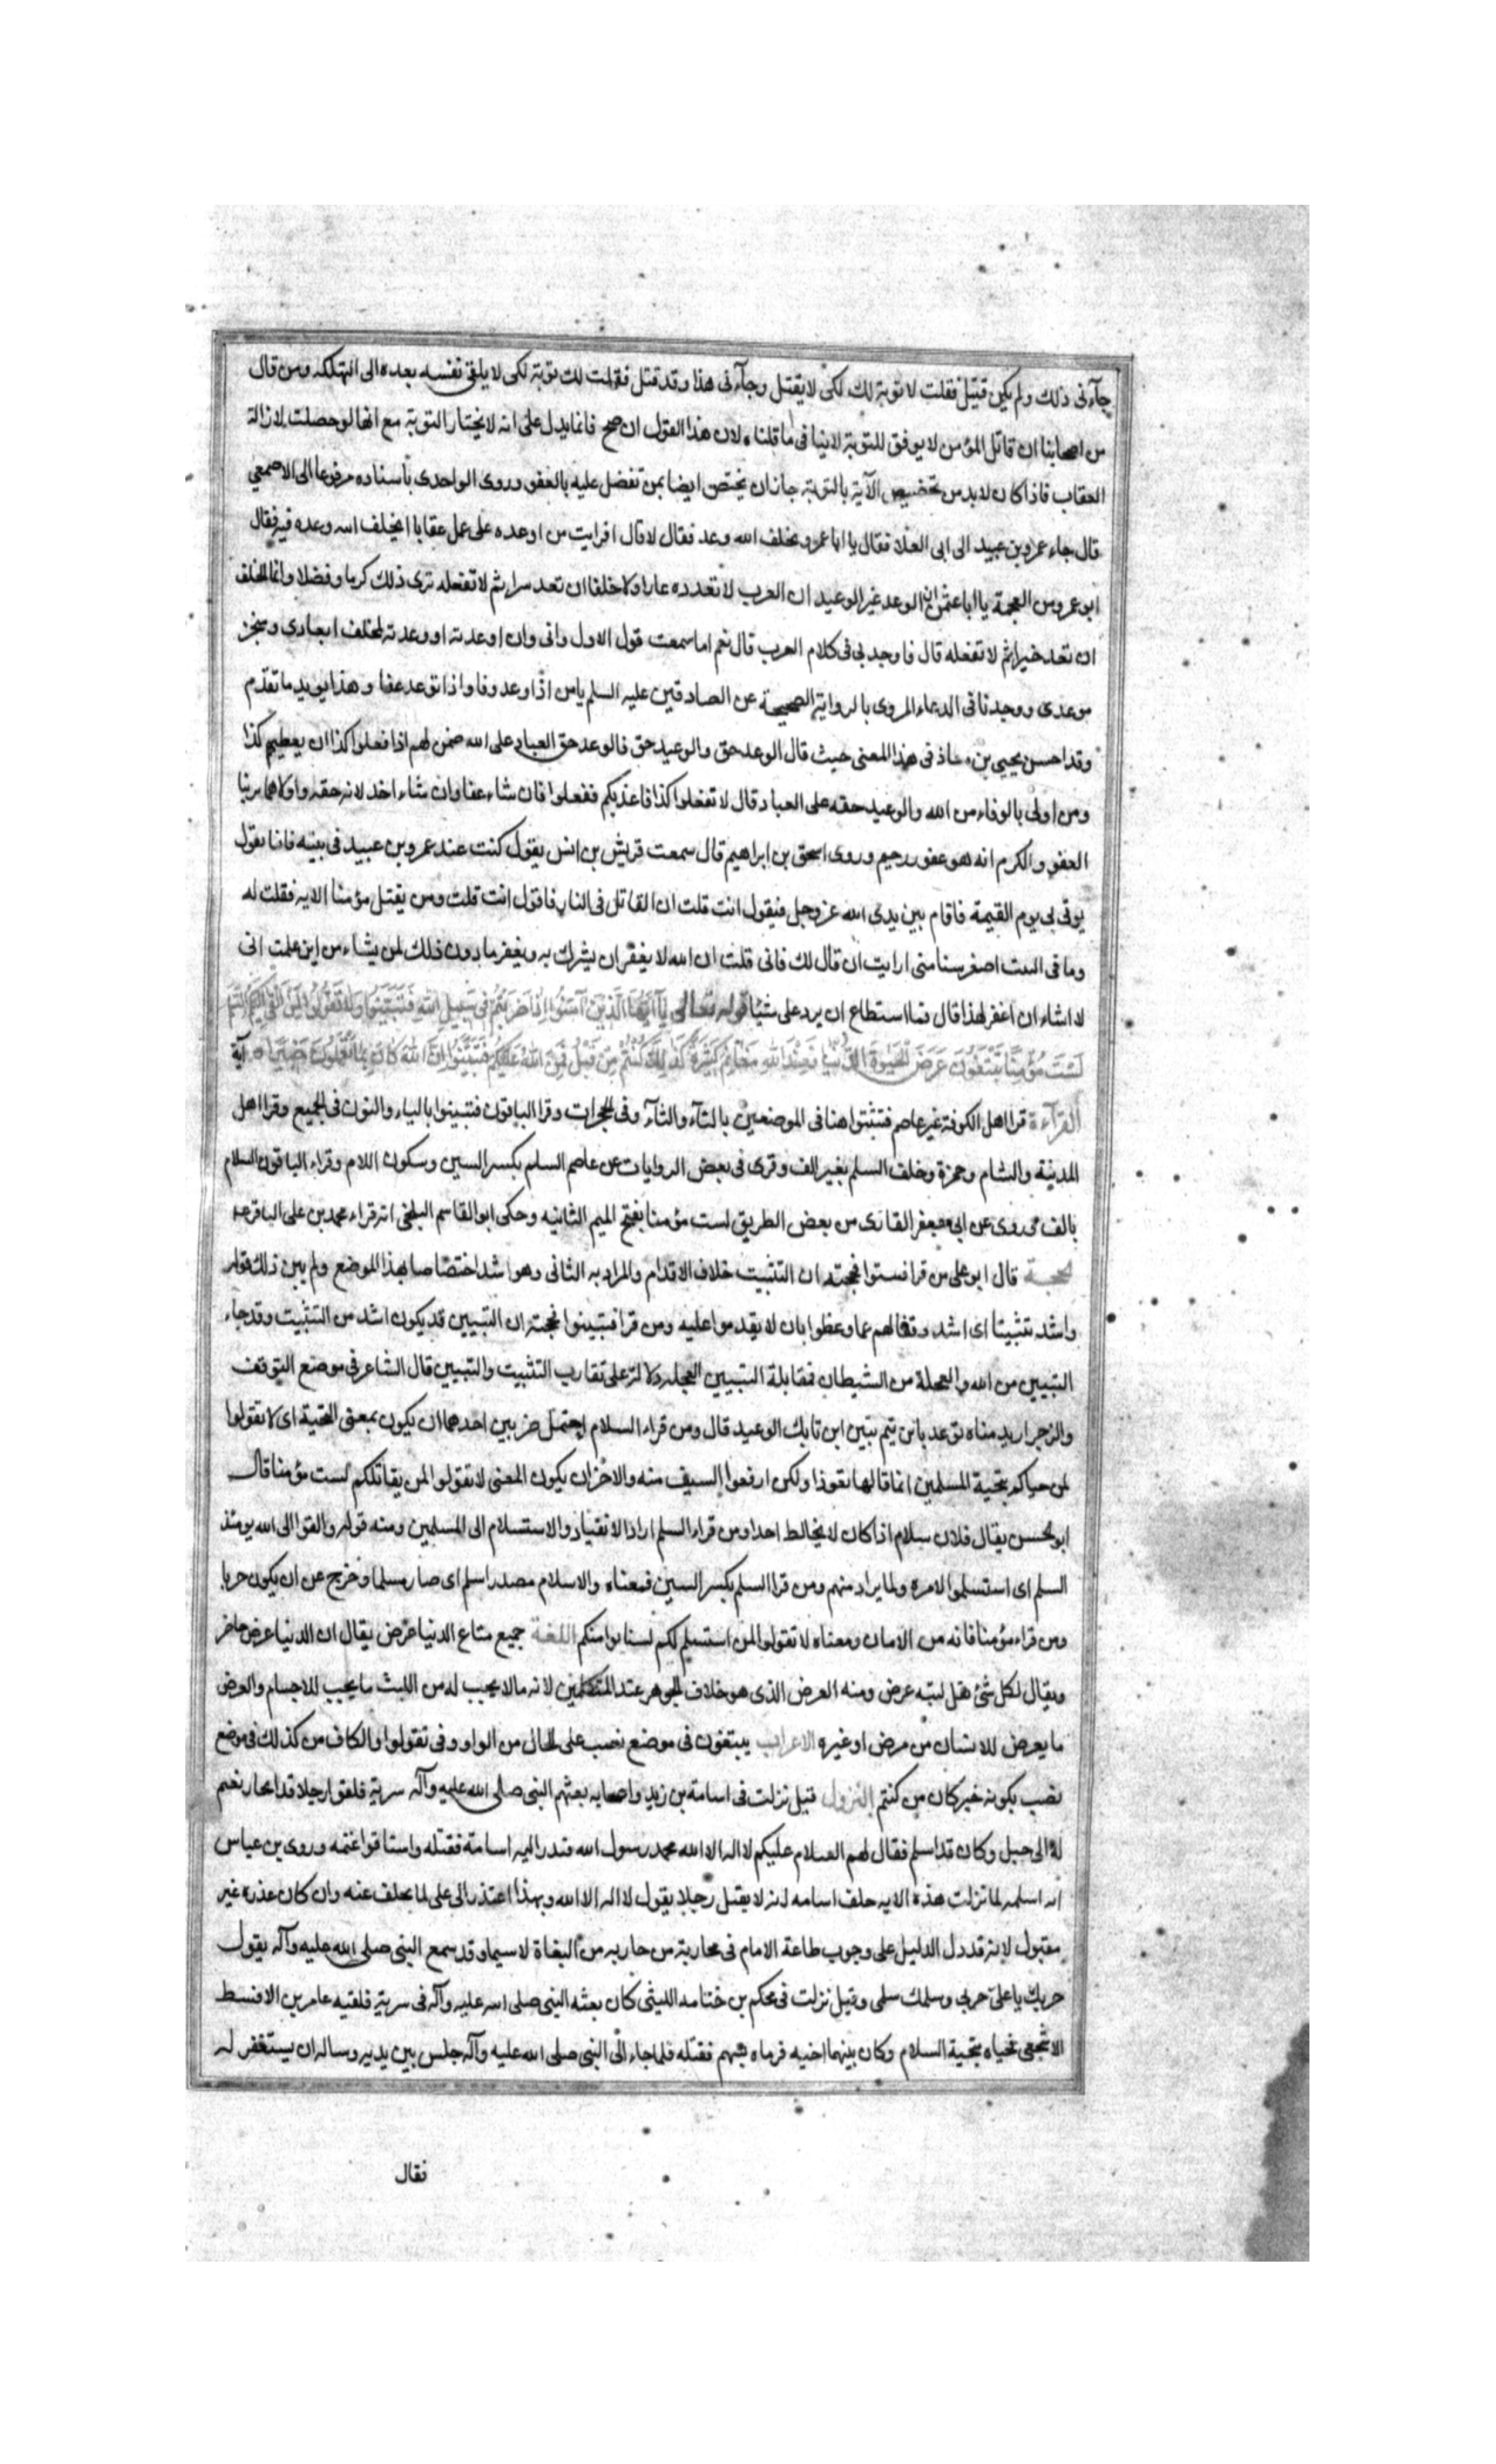 جآءنى ذلك ولم يكن قتيل فقلت لا توبة لك لكى لا يقتل وجآءنى هذا وقد قتل فقلت لك توبة لكى لا يلقى نفسه بعده الى التهلكه ومن قال
من اصحابنا ان قاتل المؤمن لا يوفق للتوبة لا ينافى ما قلناه لان هذا القول ان صح فانما يدل على انه لا يختار التوبة مع انها لو حصلت لازالة
العقاب فاذا كان لا بد من تخصيص الآية بالتوبة جاز ان يختص ايضا بمن تفضل عليه بالعفو وروى الواحدى باسناده مرفوعا الى الاصمعي
قال جاء عمرو بن عبيد الى ابى العلا فقال يا ابا عمرو يخلف الله وعد فقال لا قال افرايت من اوعده على عمل عقابا ايخلف الله وعده فيه فقال
ابو عمرو من العجمة يا ابا عثمن ان الوعد غير الوعيد ان العرب لا تعدده عارا ولا خلفا ان تعد سرا ثم لا تفعله ترى ذلك كرما وفضلا وانما الخلف
ان تعد خيرا ثم لا تفعله قال فاوجد لى فى كلام العرب قال نعم اما سمعت قول الاول وانى وان اوعدته او وعدته لمخلف ايعادى ومنجز
موعدى ووجدنا فى الدعاء المروى بالرواية الصحيحة عن الصادقين عليه السلم يا من اذا وعد وفا واذا توعد عفا وهذا يويد ما تقدم
وقد احسن يحيى بن معاذ فى هذا المعنى حيث قال الوعد حق والوعيد حق فالوعد حق العباد على الله ضمن لهم اذا فعلوا كذا ان يعطيهم كذا
ومن اولى بالوفاء من الله والوعيد حقه على العباد قال لا تفعلوا كذا فاعذبكم ففعلوا فان شاء عفا وان شاء اخذ لانه حقه واولاهما بربنا
العفو والكرم انه هو عفو رحيم وروى اسحق بن ابراهيم قال سمعت قريش بن انس يقول كنت عند عمرو بن عبيد فى بيته فانشا يقول
يوتى بى يوم القيمة فاقام بين يدى الله عز وجل فيقول انت قلت ان القاتل فى النار فاقول انت قلت ومن يقتل مؤمنا الايه فقلت له
وما فى البيت اصغر سنا منى ارايت ان قال لك فانى قلت ان الله لا يغفر ان يشرك به ويغفر ما دون ذلك لمن يشاء من اين علمت انى
لا اشاء ان اغفر لهذا قال فما استطاع ان يرد على شيئا قوله تعالى يا ايها الذين آمنوا اذا ضربتم فى سبيل الله فتبينوا ولا تقولوا لمن القى اليكم السلم
لست مؤمنا تبتغون عرض الحيوة الدنيا فعند الله مغانم كثيرة كذلك كنتم من قبل فمن الله عليكم فتبينوا ان الله كان بما تعملون خبيرا آية
القرآءة قرا اهل الكوفة غير عاصم فتثبتوا هنا فى الموضعين بالثآء والتآء وفى الحجرات وقرا الباقون فتبينوا بالياء والنون فى الجميع وقرا اهل
المدينة والشام وحمزة وخلف السلم بغير الف وقرى فى بعض الروايات عن عاصم السلم بكسر السين وسكون اللام وقراء الباقون السلام
بالف وروى عن ابى جعفر القارى من بعض الطريق لست مؤمنا بفتح الميم الثانيه وحكى ابو القاسم البلخى انه قراءة محمد بن على الباقر عه
الحجة قال ابو على من قرا فتثبتوا فحجته ان التثبيت خلاف الاقدام والمراد به الثانى وهو اشد اختصاصا بهذا الموضع ولم يبين ذلك قوله
واشد تثبيتا اى اشد وقفا لهم عما وعظوا بان لا يقدموا عليه ومن قرا فتبينوا فحجته ان التبيين قد يكون اشد من التثبيت وقد جاء
التبيين من الله والعجلة من الشيطان فمقابلة التبيين العجله دلالة على تقارب التثبيت والتبيين قال الشاعر فى موضع التوقف
والزجر ازيد مناه توعد يا ابن تيم تبين اين تا بك الوعيد قال ومن قراء السلام احتمل ضربين احدهما ان يكون بمعنى التحية اى لا تقولوا
لمن حياكم بتحية المسلمين انما قالها تعوذا ولكن ارفعوا السيف منه والاخر ان يكون المعنى لا تقولوا لمن يقاتلكم لست مؤمنا قال
ابو الحسن يقال فلان سلام اذا كان لا يخالط احدا ومن قراء السلم اراد الانقياد والاستسلام الى المسلمين ومنه قوله والقوا الى الله يومئذ
السلم اى استسلموا لامره ولما يراد منهم ومن قرا السلم بكسر السين فمعناه والاسلام مصدر اسلم اى صار مسلما وخرج عن ان يكون حربا
ومن قراء مؤمنا فانه من الامان ومعناه لا تقولوا لمن استسلم لكم لسنا نوامنكم اللغة جميع متاع الدنيا عرض يقال ان الدنيا عرض حاضر
ويقال لكل شئ يقل لبثه عرض ومنه العرض الذى هو خلاف الجوهر عند المتكلمين لانه ما لا يجب له من اللبث ما يجب للاجسام والعرض
ما يعرض للانسان من مرض او غيره الاعراب يبتغون فى موضع نصب على الحال من الواو وفى تقولوا والكاف من كذلك فى موضع
نصب بكونه خبر كان من كنتم النزول قيل نزلت فى اسامة بن زيد واصحابه بعثهم النبى صلى الله عليه وآله سرية فلقوا رجلا قد انحاز بغنم
له الى جبل وكان قد اسلم فقال لهم السلام عليكم لا اله الا الله محمد رسول الله فبدر اليه اسامة فقتله واستاقوا غنمه وروى بن عباس
انه اسلمه لما نزلت هذه الايه حلف اسامه انه لا يقتل رجلا يقول لا اله الا الله وبهذا اعتذر الى على لما تخلف عنه وان كان عذره غير
مقبول لانه قد دل الدليل على وجوب طاعة الامام فى محاربة من حاربه من البغاة لا سيما وقد سمع النبى صلى الله عليه وآله يقول
حربك يا على حربى وسلمك سلمى وقيل نزلت فى محكم بن ختامه الليثى كان بعثه النبى صلى الله عليه وآله فى سرية فلقيه عامر بن الافسط
الاشجعى فحياه بتحية السلام وكان بينهما اخنيه فرماه بسهم فقتله فلما جاء الى النبى صلى الله عليه وآله جلس بين يديه وساله ان يستغفر له
فقال